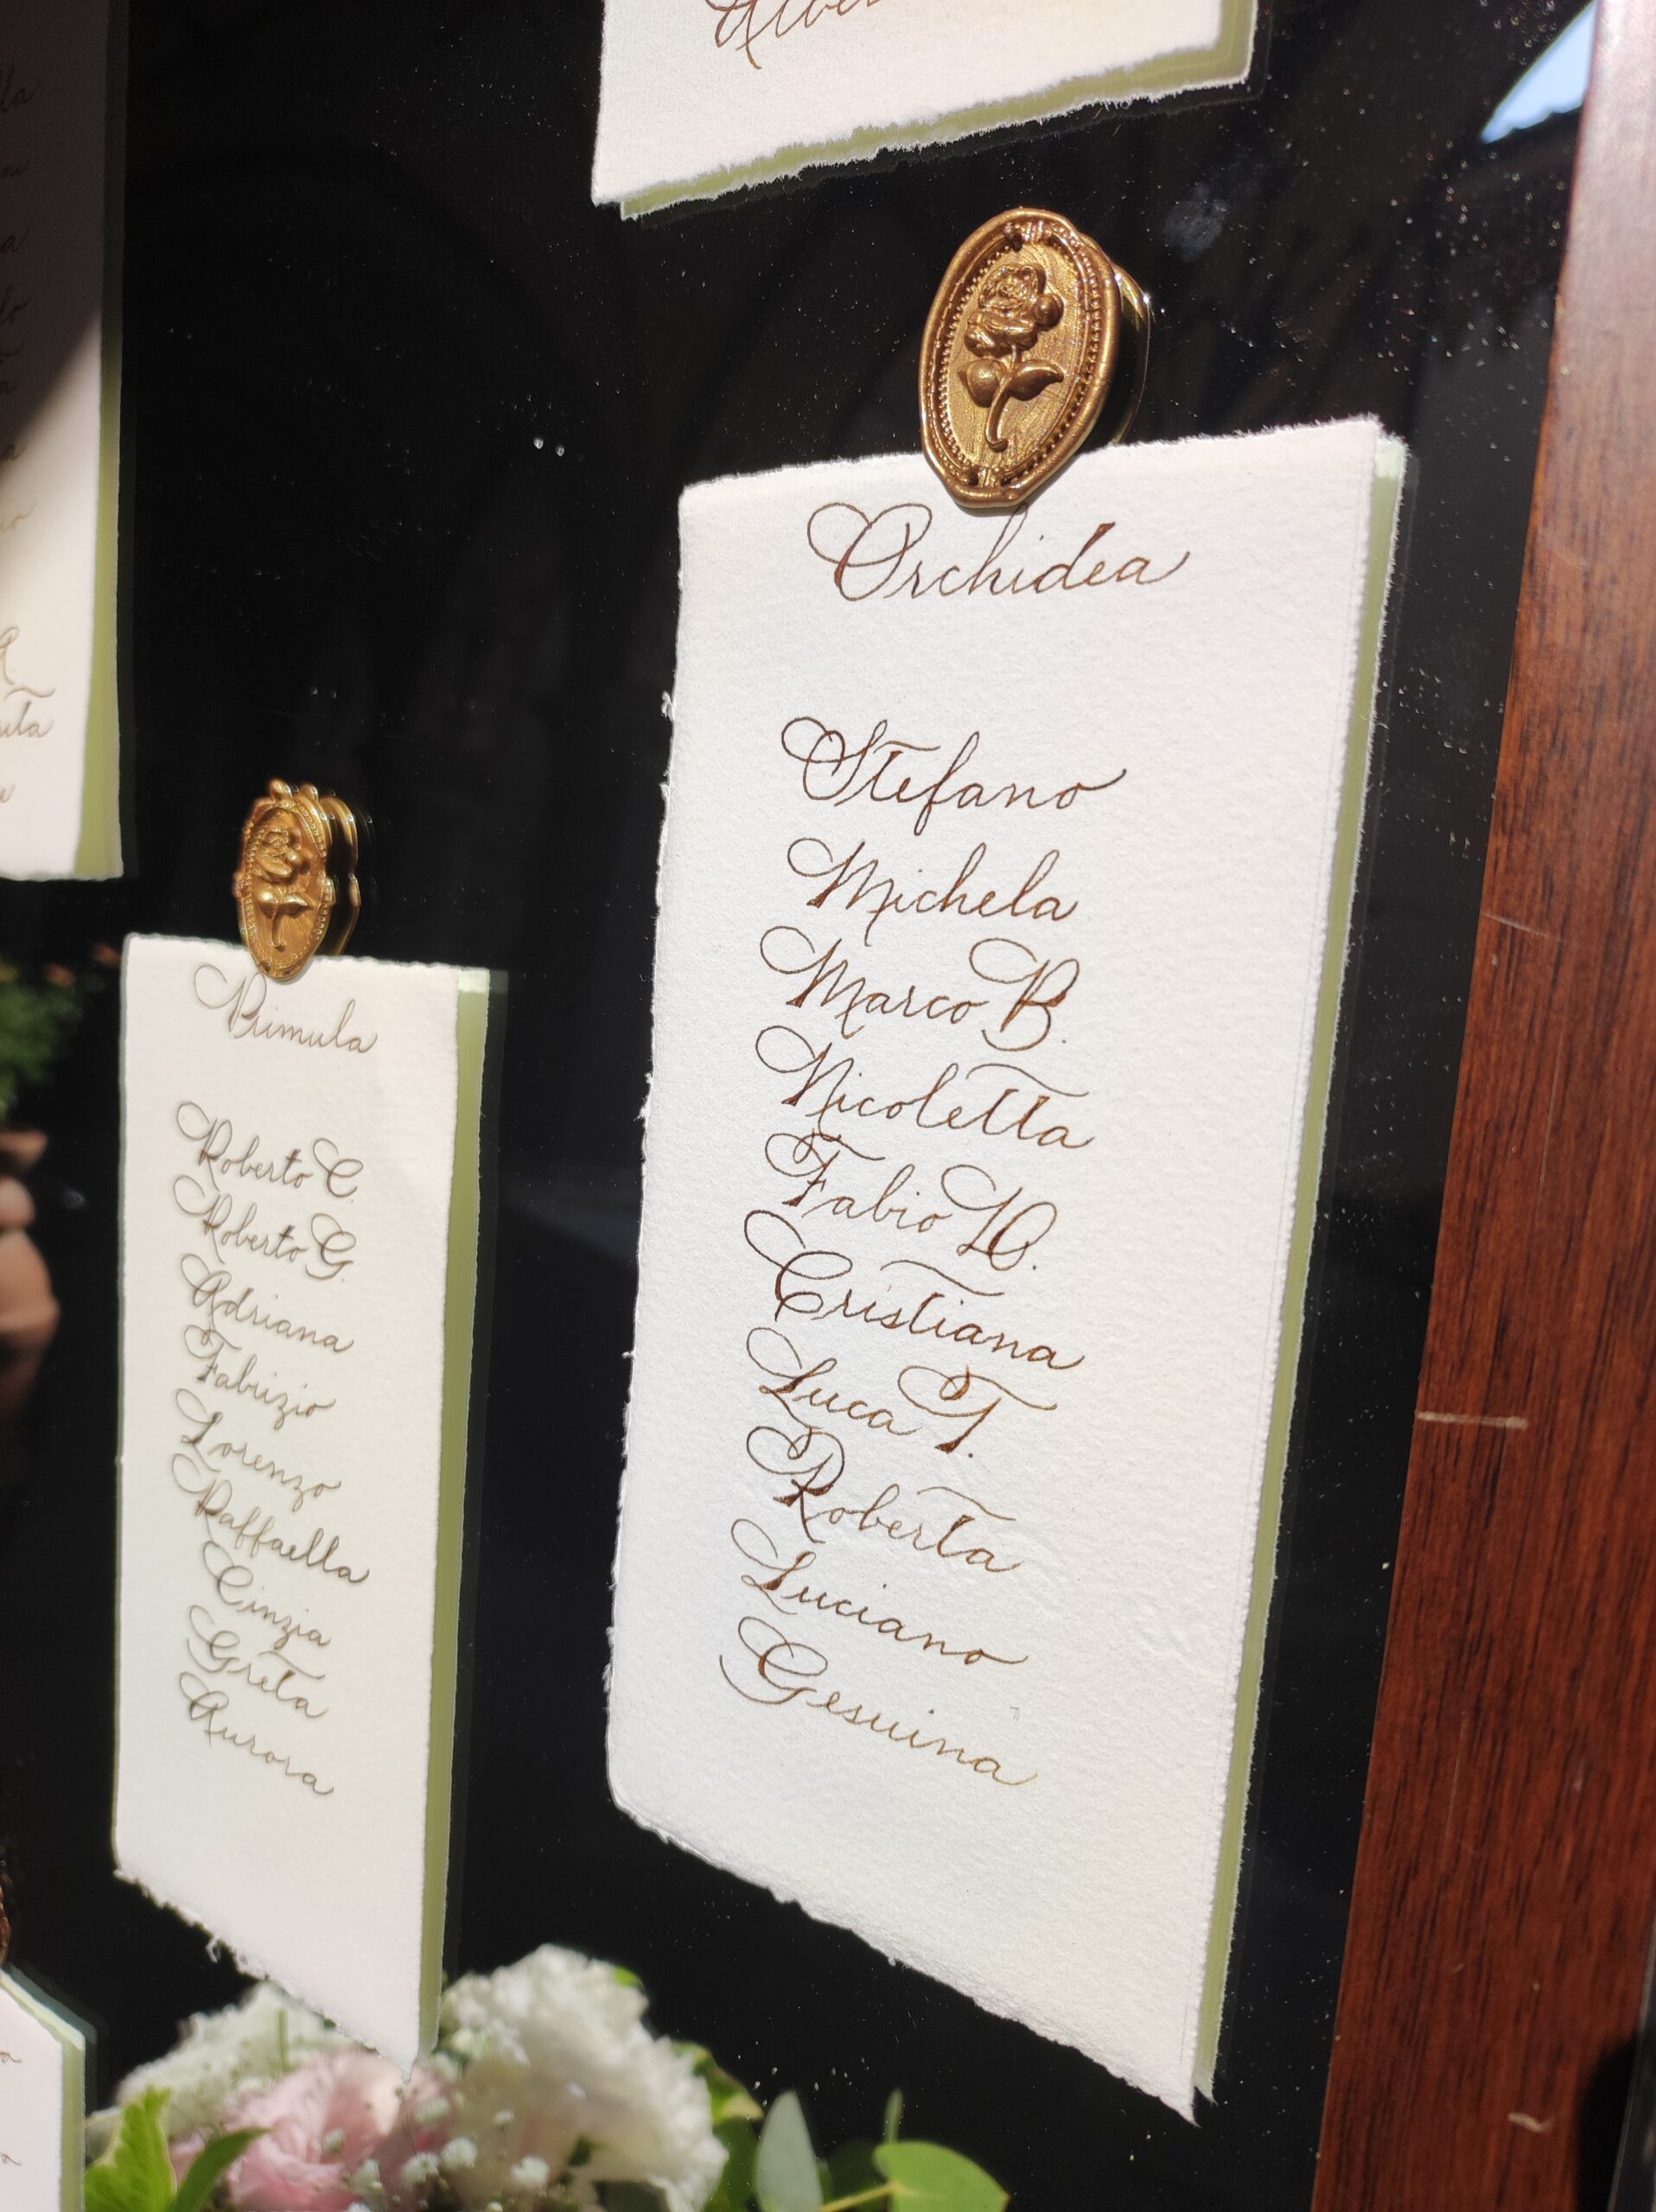 Orchidea
Stefano
Michela
Marco B.
Nicoletta
Fabio D.
Cristiana
Luca T.
Roberta
Luciano
Gesuina
Primula
Roberto C.
Roberto G.
Adriana
Fabrizio
Lorenzo
Raffaella
Cinzia
Greta
Aurora